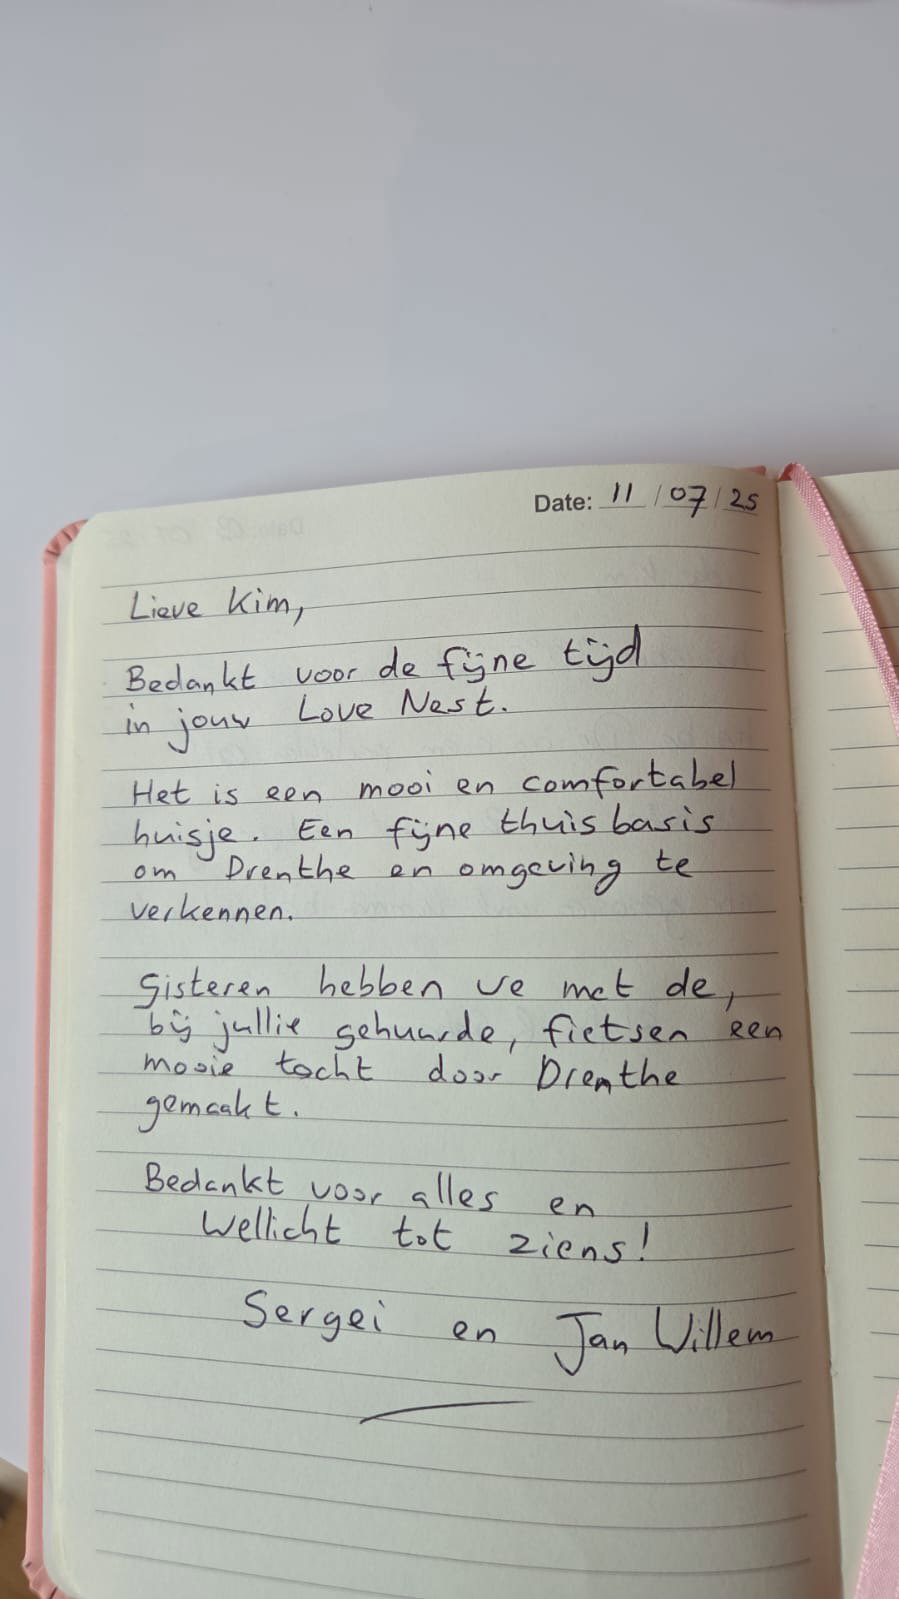 Date: 11/07/25
Lieve Kim,
Bedankt voor de fijne tijd
in jouw Love Nest.
Het is een mooi en comfortabel
huisje. Een fijne thuisbasis
om Drenthe en omgeving te
verkennen.
Gisteren hebben we met de,
bij jullie gehuurde, fietsen een
mooie tocht door Drenthe
gemaakt.
Bedankt voor alles en
wellicht tot ziens!
Sergei en Jan Willem